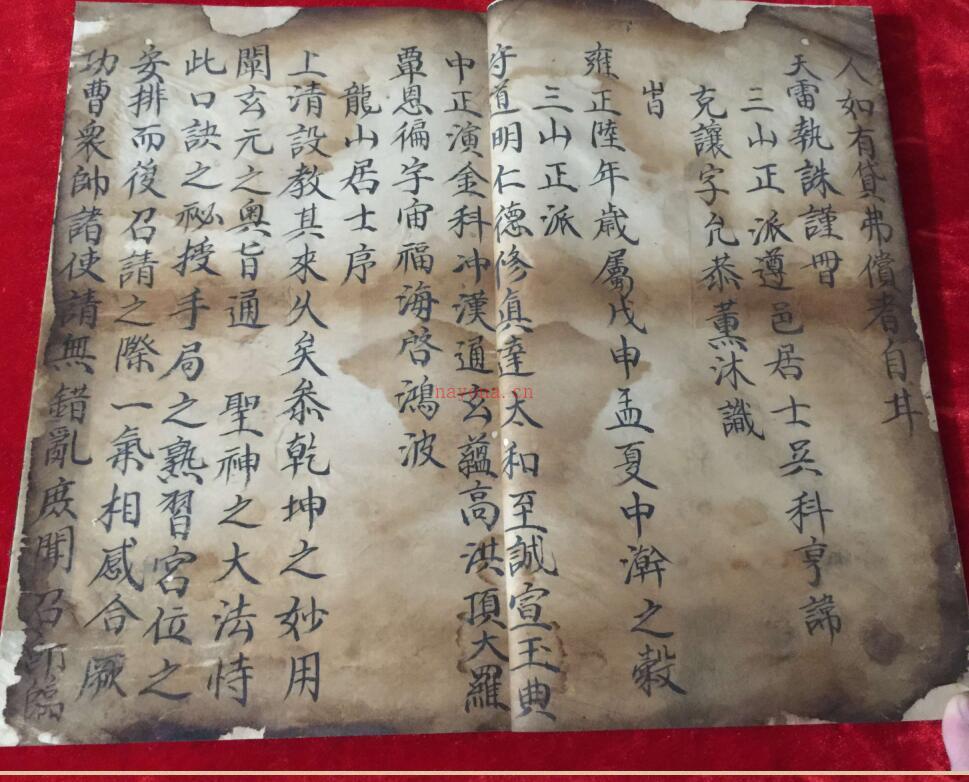 人如有貸弗償者自井
天雷執誅謹冊
三山正派遵邑居士吳科亨諱
克讓字允恭薰沐識
旹
雍正陸年歲屬戊申孟夏中澣之穀
三山正派
守道明仁德修真達太和至誠宣玉典
中正演金科冲漢通玄蘊高洪頂大羅
覃恩徧宇宙福海啓鴻波
龍山居士序
上清設教其來久矣叅乾坤之妙用
闡玄元之奧旨通 聖神之大法恃
此口訣之祕授手局之熟習宮位之
安排而後召請之際一氣相感合厥
功曹衆帥諸使請無錯亂庶開召臨
nayona.cn